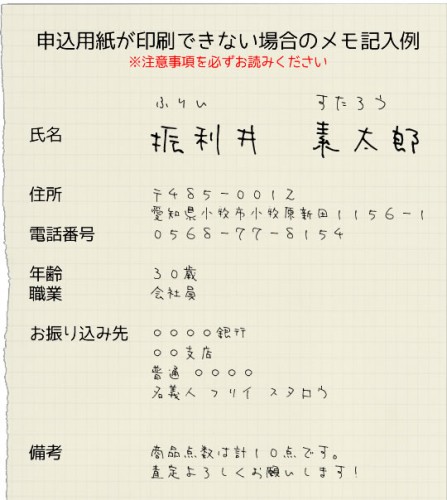 申込用紙が印刷できない場合のメモ記入例
※注意事項を必ずお読みください
ふりい すたろう
氏名 振利井 素太郎
住所 〒485-0012
愛知県小牧市小牧原新田1156-1
電話番号 0568-77-8154
年齢 30歳
職業 会社員
お振り込み先 ○○○○銀行
○○支店
普通 ○○○○
名義人 フリイ スタロウ
備考 商品点数は計10点です。
査定よろしくお願いします!